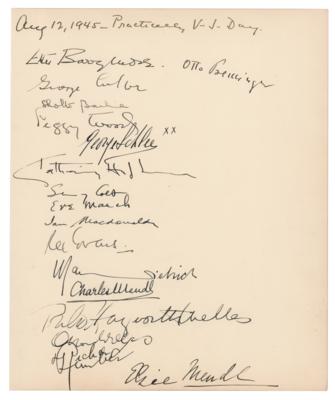 Aug 12, 1945 - Practically V-J Day.
Ethel Barrymore. Otto Preminger
George Cukor
Peggy Wood
George Schlee xx
Katharine Hepburn
Eve March
Ian Macdonald
Lee Evans.
Dietrich
Charles Mendl
Rita Hayworth Welles
Orson Welles
Elsie Mendl